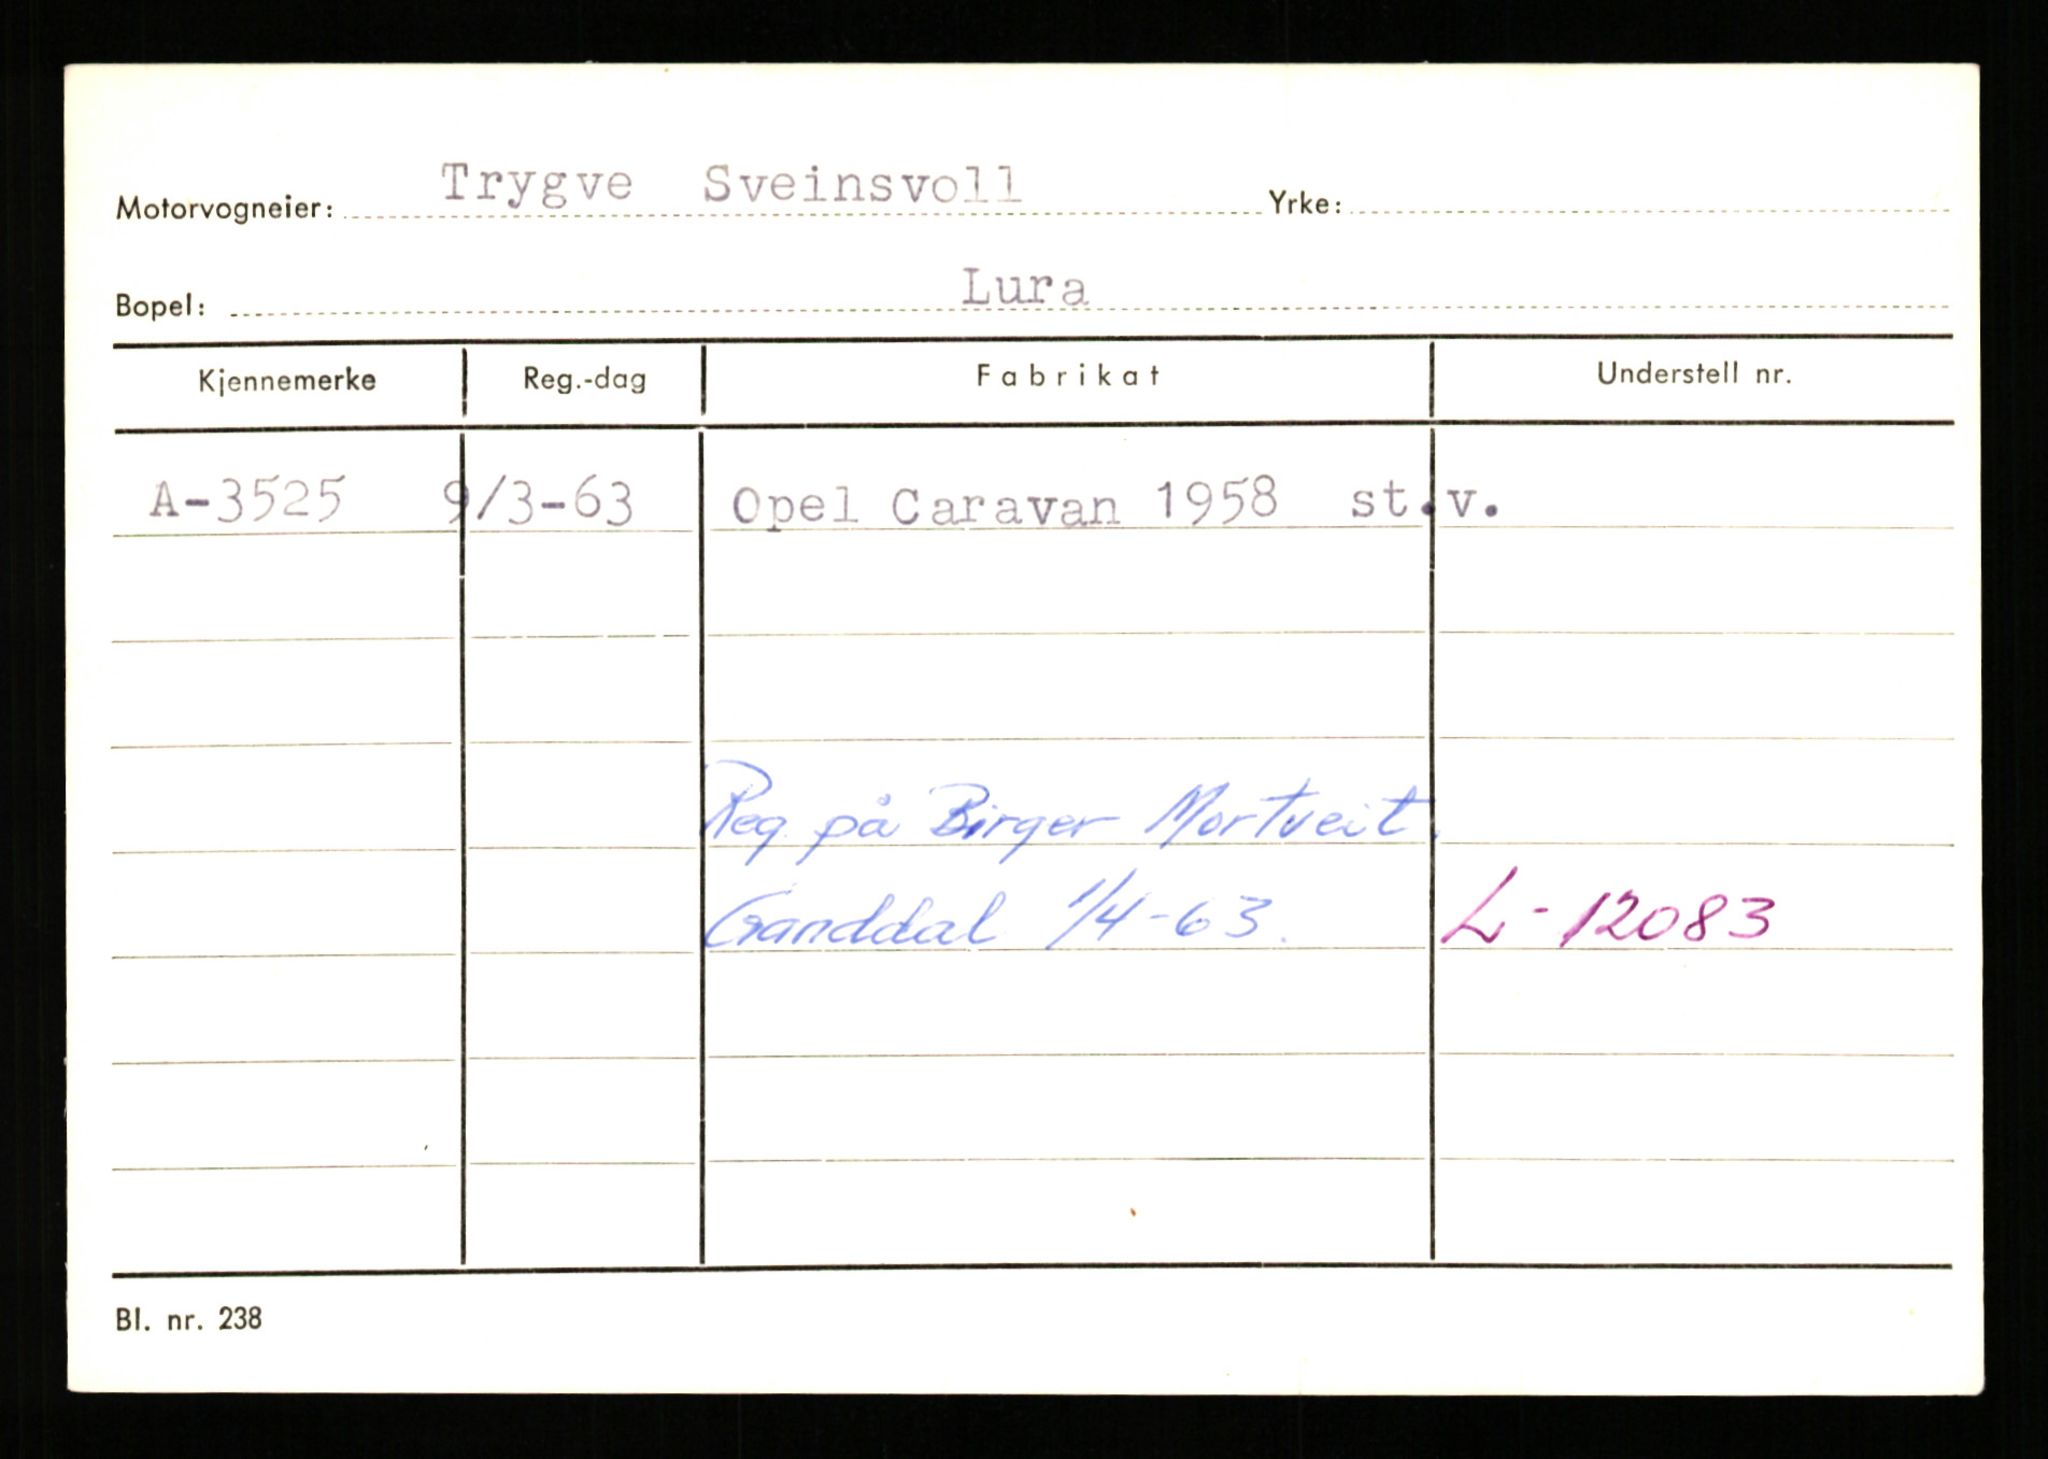 Motorvogneier: Trygve Sveinsvoll Yrke:
Bopel: Lura
Kjennemerke Reg.-dag Fabrikat Understell nr.
A-3525 9/3-63 Opel Caravan 1958 st.v.
Reg. på Birger Mortveit.
Ganddal 1/4-63. L-12083
Bl. nr. 238